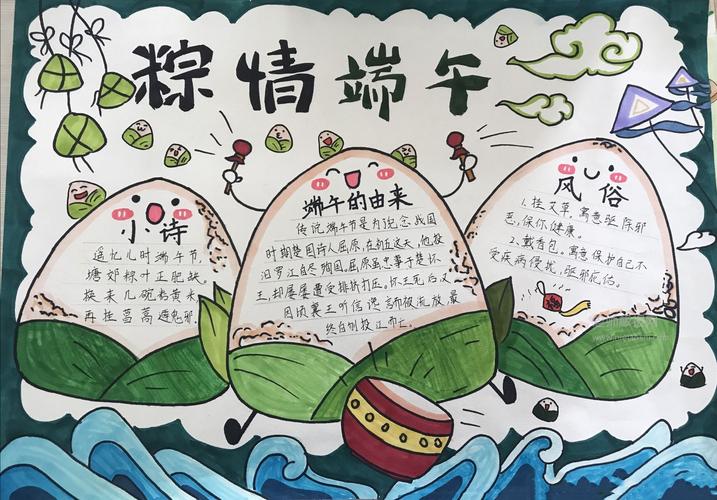 粽情端午
小诗
遥忆儿时端午节,
塘郊粽叶正肥缺。
换来几碗
再挂菖蒿
端午的由来
传说端午节是为纪念战国
时期楚国诗人屈原,在初五这天,他投
汨罗江自尽殉国。屈原虽忠事于楚怀
王,却屡屡遭受排挤打压。怀王死后又
因顷襄王听信谗言而被流放,最
终自刎投江而亡。
风俗
1.挂艾草,寓意驱除邪
恶,保你健康。
2.戴香包,寓意保护自己不
受疾病侵扰,驱邪庇佑。